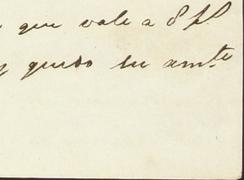 que vale a 8 p.s
y quedo su am.te